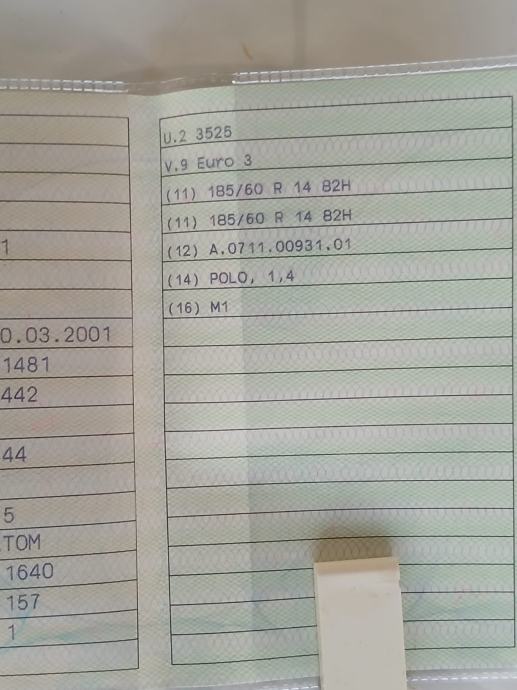 1
0.03.2001
1481
442
44
5
TOM
1640
157
1
U.2 3525
V.9 Euro 3
(11) 185/60 R 14 82H
(11) 185/60 R 14 82H
(12) A.0711.00931.01
(14) POLO, 1,4
(16) M1